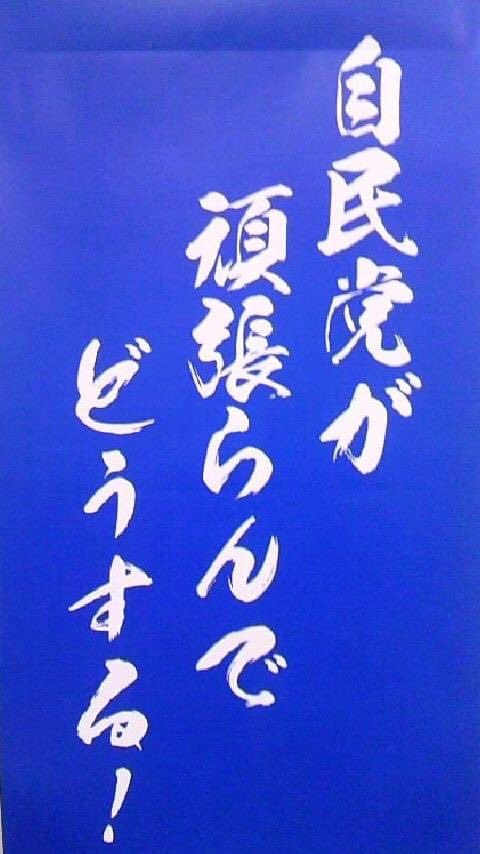 自民党が
頑張らんで
どうする!